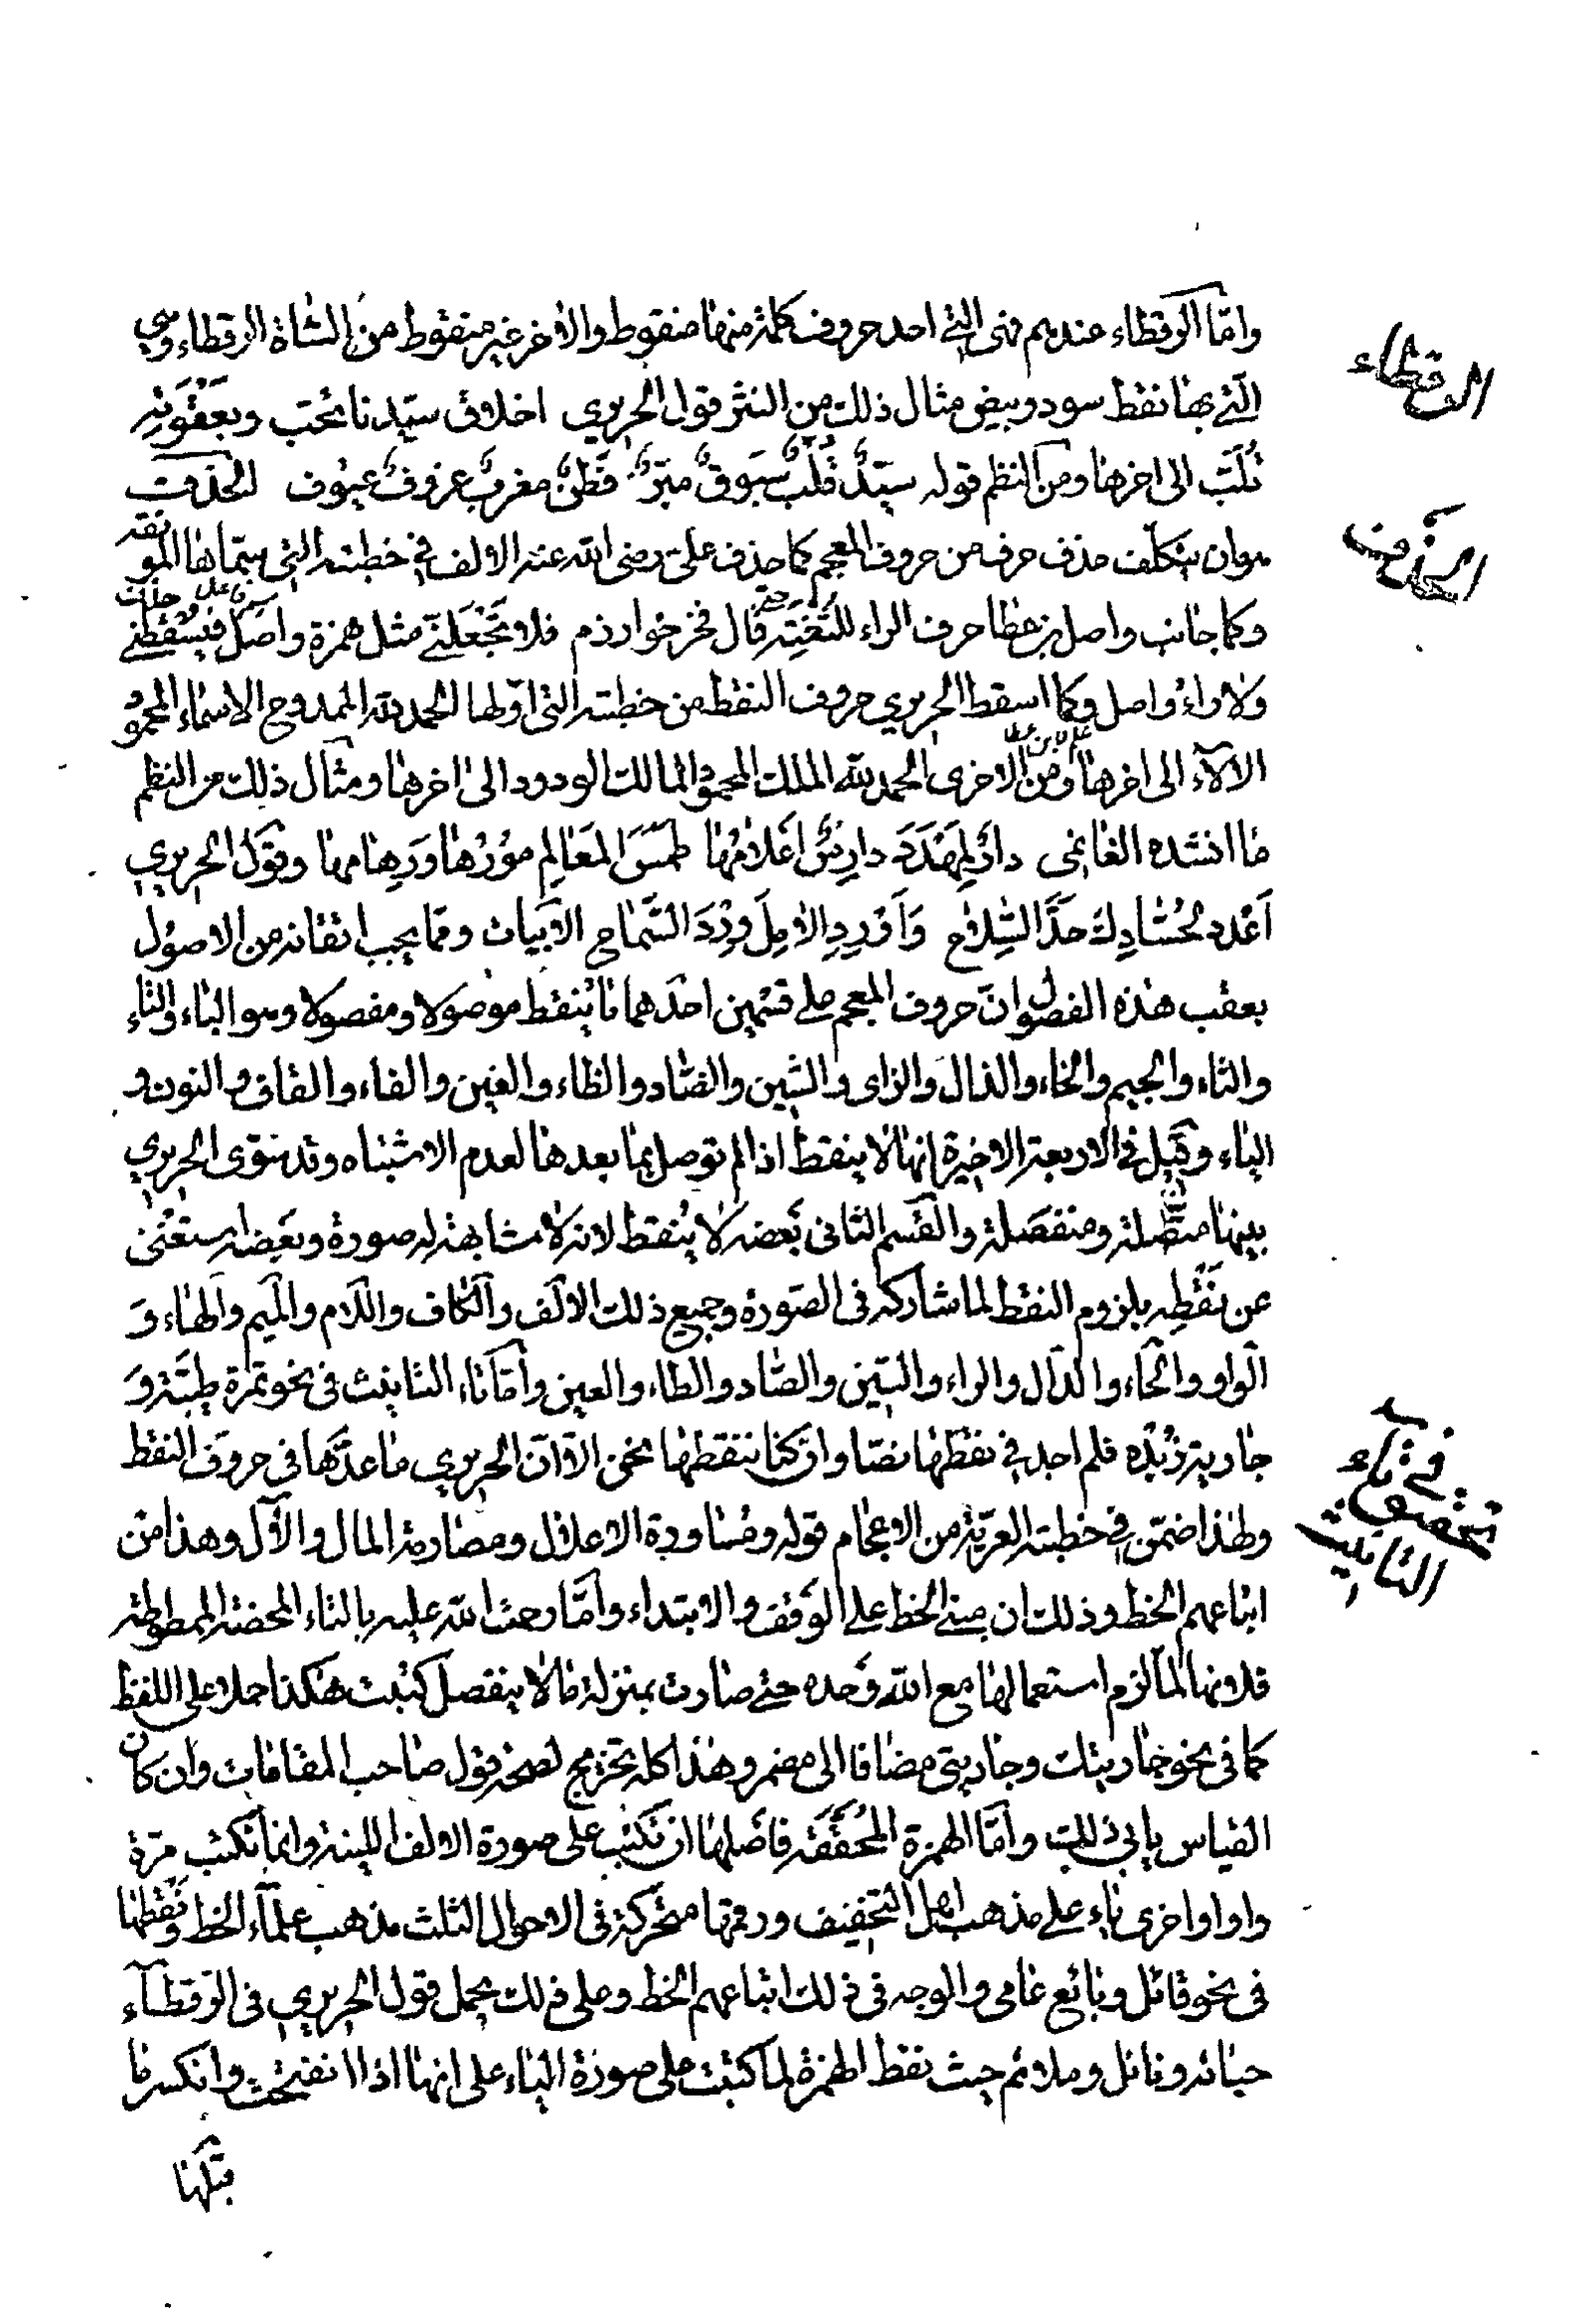 وامّا الرقطاء عندهم فهى التي احد حروف كلمة منها منقوط والاخر غير منقوط من الشاة الرقطاء وهي
الرقطاء
الّتي بها نقط سود وبيض مثال ذلك من النثر قول الحريري اخلاق سيّدنا تحب وبعقوته
تُلَبّ الى اخرها ومن النظم قوله سيّدٌ قُلّبٌ سبوقٌ مبرٌّ فطنٌ مغربٌ عزوفٌ عيوف الحذف
الحذف
هو ان يتكلّف حذف حرف من حروف المعجم كما حذف علىّ رضى الله عنه الالف في خطبته التي سمّاها المونقة
وكما جانب واصل بن عطا حرف الراء للثغته قال فخر خوارزم فلا تجعلنّي مثل همزة واصل فيسقطني
ولا راء واصل وكما اسقط الحريري حروف النقط من خطبته التي اوّلها الحمد لله الممدوح الاسماء المحمود
الالآء الى اخرها ومن الاخرى الحمد لله الملك المحمود المالك الودود الى اخرها ومثال ذلك من النظم
ما انشده الغانمى دارٌ لِمَهْدَدَ دارِسٌ اعلامُها طمَسَ المَعَالِمَ مُورُها وَرِهامها وقول الحريري
اَعْدِد لحُسّادِك حَدَّ السِّلاح وَاَورِدِ الامِلَ وِرْدَ السَّمَاح الابيات وممّا يجب اتقانه من الاصول
بعقب هذه الفصول انّ حروف المعجم على قسمين احدهما ما يُنقط موصولا ومفصولا وهو الباء والتاء
والثاء والجيم والخاء والذال والزاى والشين والضّاد والظاء والغين والفاء والقاف والنون و
الياء وقيل في الاربعة الاخيرة انها لا ينقط اذا لم توصل بما بعدها لعدم الاشتباه وقد سوّى الحريري
بينها متّصلة ومنفصلة والقسم الثانى بعضه لا يُنقط لانه لا مشابهة له صورة وبعضه استغنى
عن نَقْطِه بلزوم النقط لما شاركه فى الصّورة وجميع ذلك الالف والكاف واللام والميم والهاء و
الواو والحاء والدال والراء والسّين والصّاد والطاء والعين وامّا تاء التانيث فى نحو تمرة طيّبة و
جارية زبْدة فلم اجد في نقطها نصّا وان كنا ننقطها نحن الا انّ الحريري ما عدّها فى حروف النقط
فى تحقيق تاء التانيث
ولهذا ضمّن في خطبته العريّة من الاعجام قوله ومُساورة الاعلال ومصارمة المال والآل وهذا من
اتباعهم الخط وذلك ان مبنى الخط على الوقف والابتداء وامّا رحمت الله عليه بالتاء المحضة الممطوطة
فلانها لمّا لزم استعمالها مع الله وحده حتى صارت بمنزلة ما لا ينفصل كتبت هكذا حملا على اللفظ
كما فى نحو جاريتك وجاريتى مضافا الى مضمر وهذا كله تخريج لصحة قول صاحب المقامات وان كان
القياس يابى ذلك وامّا الهمزة المُحَقّقة فاصلها ان تكتب على صورة الالف اللينة وانما تكتب مرّة
واوا واخرى ياء على مذهب اهل التخفيف ورقمها متحركة فى الاحوال الثلث مذهب علماء الخط ونَقْطها
فى نحو قائل وبائع عامى والوجه فى ذلك اتباعهم الخط وعلى ذلك يحمل قول الحريري فى الرقطاء
حبائه ونائل وملائم حيث نقط الهمزة لما كتبت على صورة الياء على انها اذا انفتحت وانكسر ما
قبلها